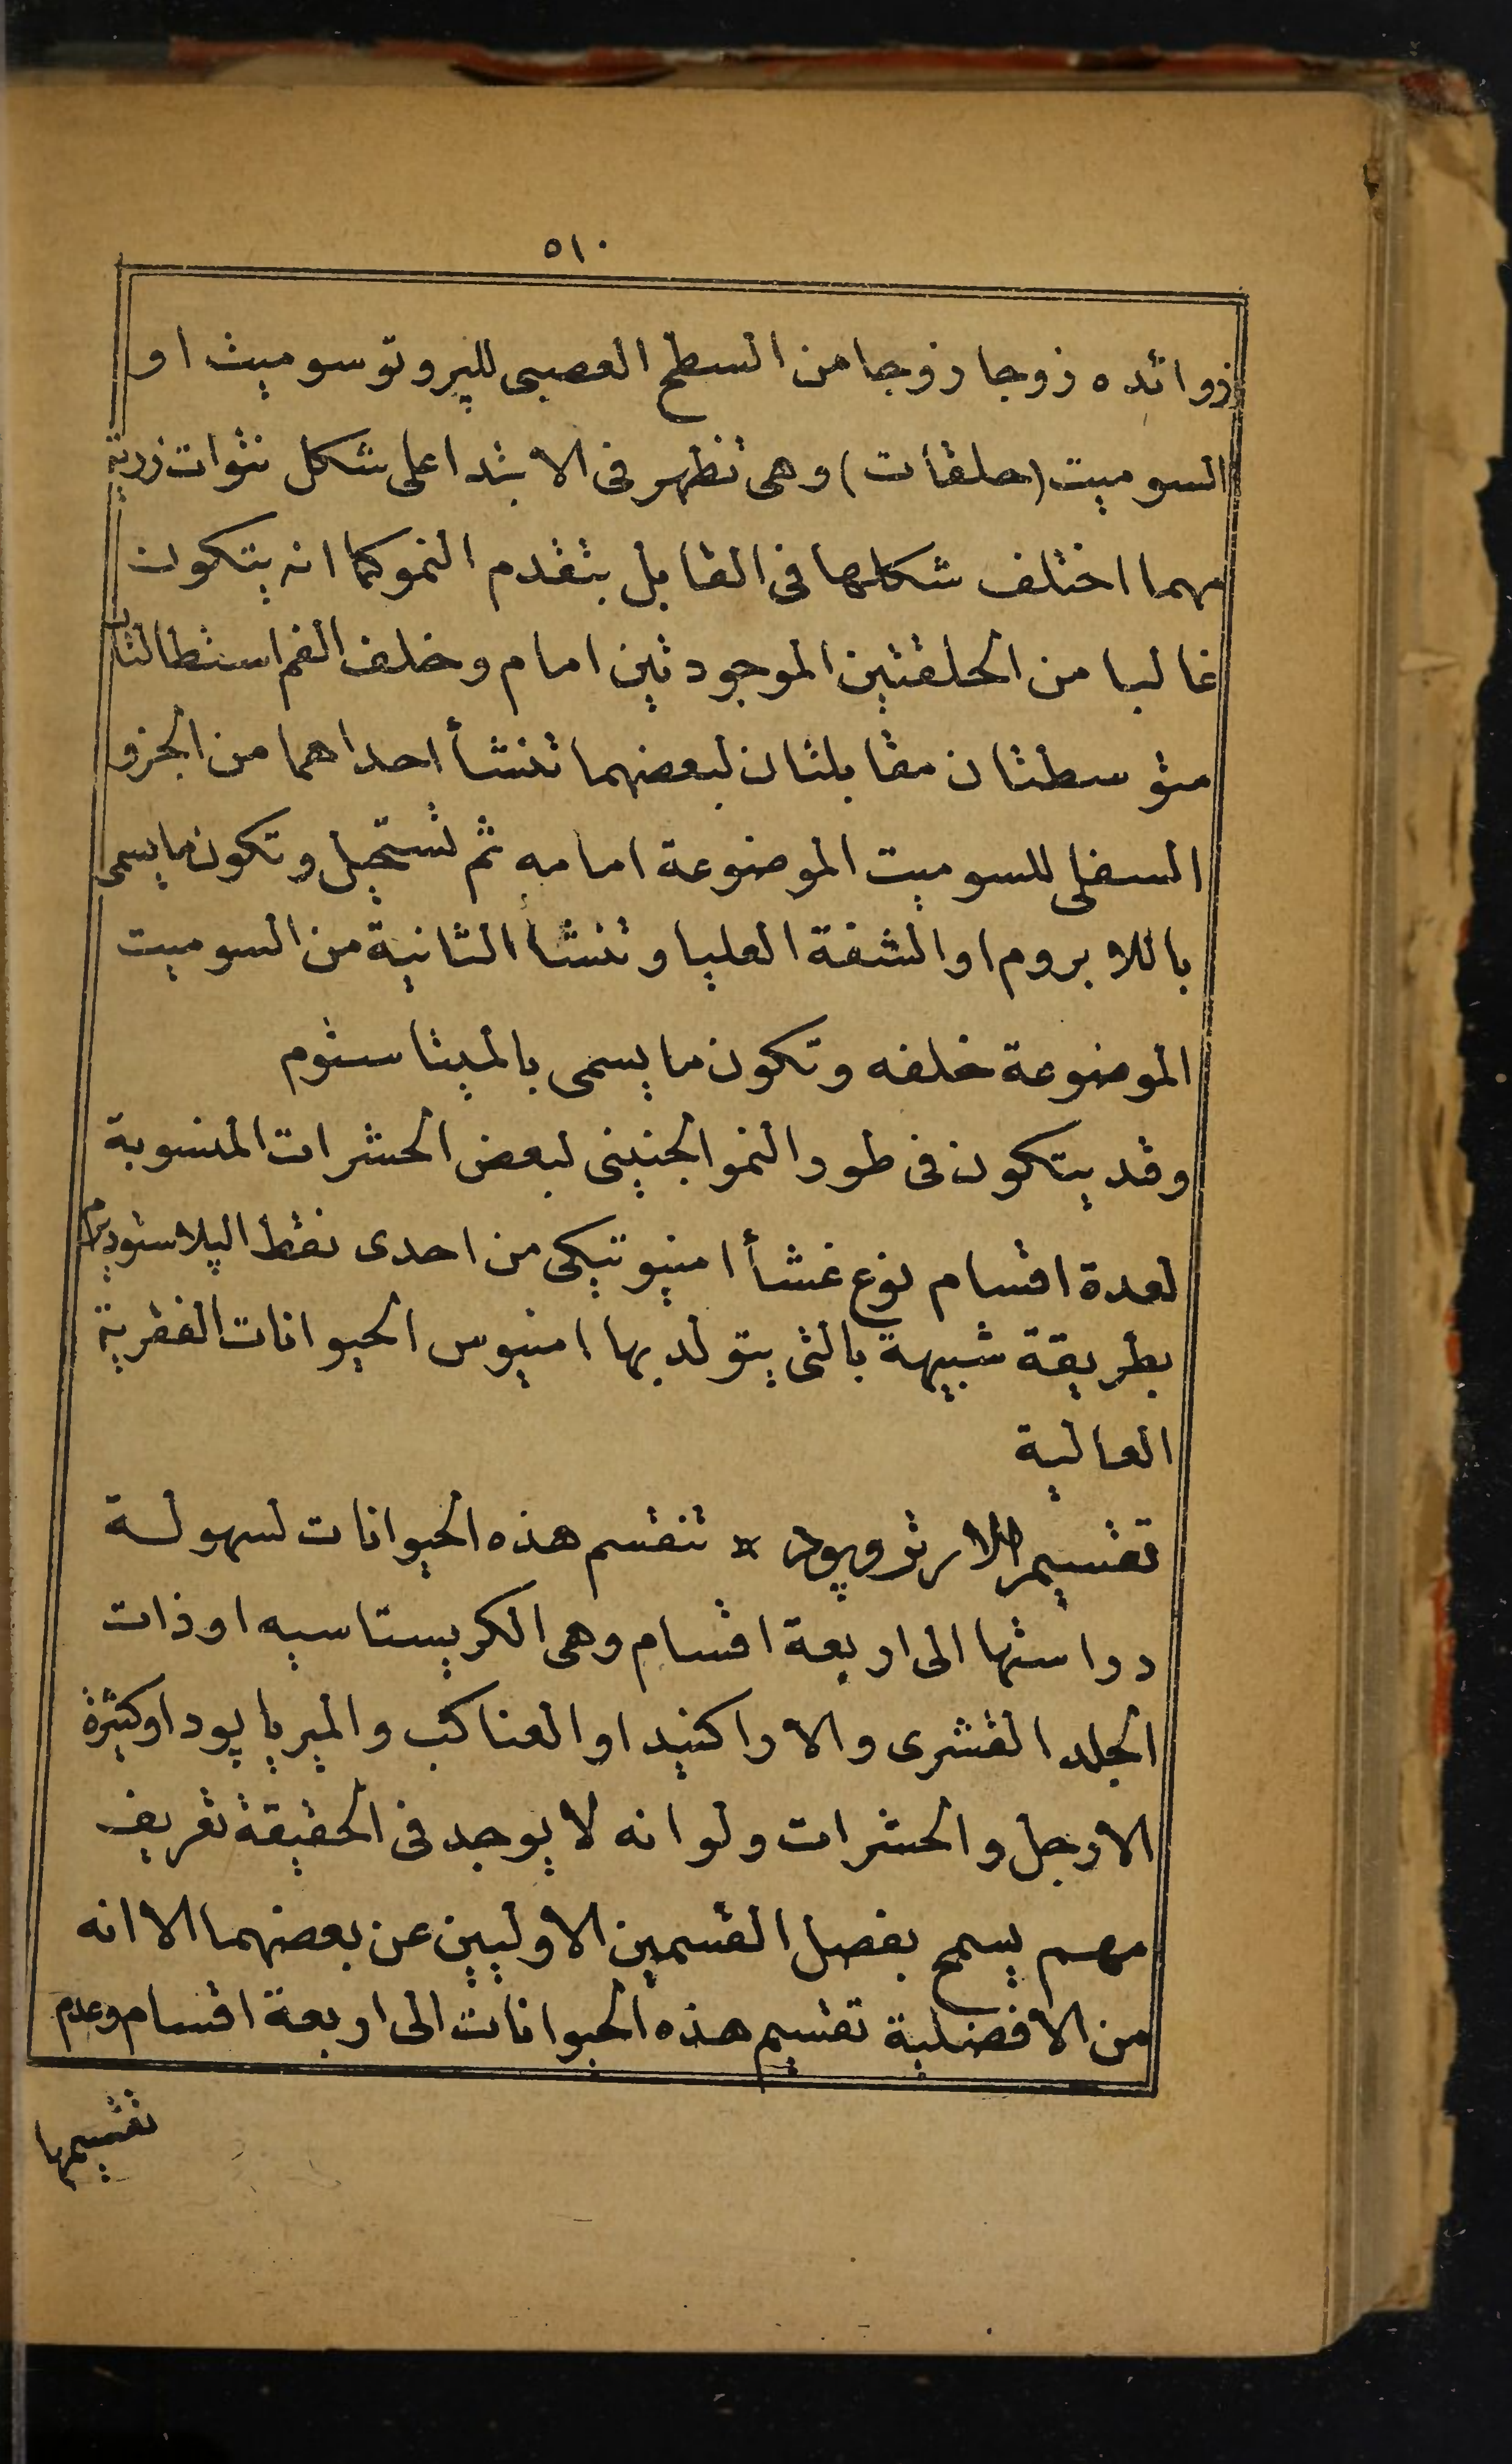 ٥١٠
زوائده زوجا زوجا من السطح العصبى للپروتوسوميت او
السوميت (حلقات) وهى تظهر فى الابتدا على شكل نتوات زرية
مهما اختلف شكلها فى القابل بتقدم النمو كما انه يتكون
غالبا من الحلقتين الموجودتين امام وخلف الفم استطالتان
متوسطتان مقابلتان لبعضهما تنشأ احداهما من الجزو
السفلى للسوميت الموضوعة امامه ثم تستحيل وتكون ما يسمى
باللابروم او الشفة العليا وتنشا الثانية من السوميت
الموضوعة خلفه وتكون ما يسمى بالميتاستوم
وقد يتكون فى طور النمو الجنينى لبعض الحشرات المنسوبة
لعدة اقسام نوع غشأ امنيوتيكى من احدى نقط الپلاستوديرم
بطريقة شبيهة بالتى يتولد بها امنيوس الحيوانات الفقرية
العالية
تقسيم الارتروپود × تنقسم هذه الحيوانات لسهولة
دراستها الى اربعة اقسام وهى الكريستاسيه او ذات
الجلد القشرى والاراكنيد او العناكب والميرياپود او كثيرة
الارجل والحشرات ولو انه لا يوجد فى الحقيقة تعريف
مهم يسمح بفصل القسمين الاوليين عن بعضهما الا انه
من الافضلية تقسيم هذه الحيوانات الى اربعة اقسام وعدم
تقسيمها